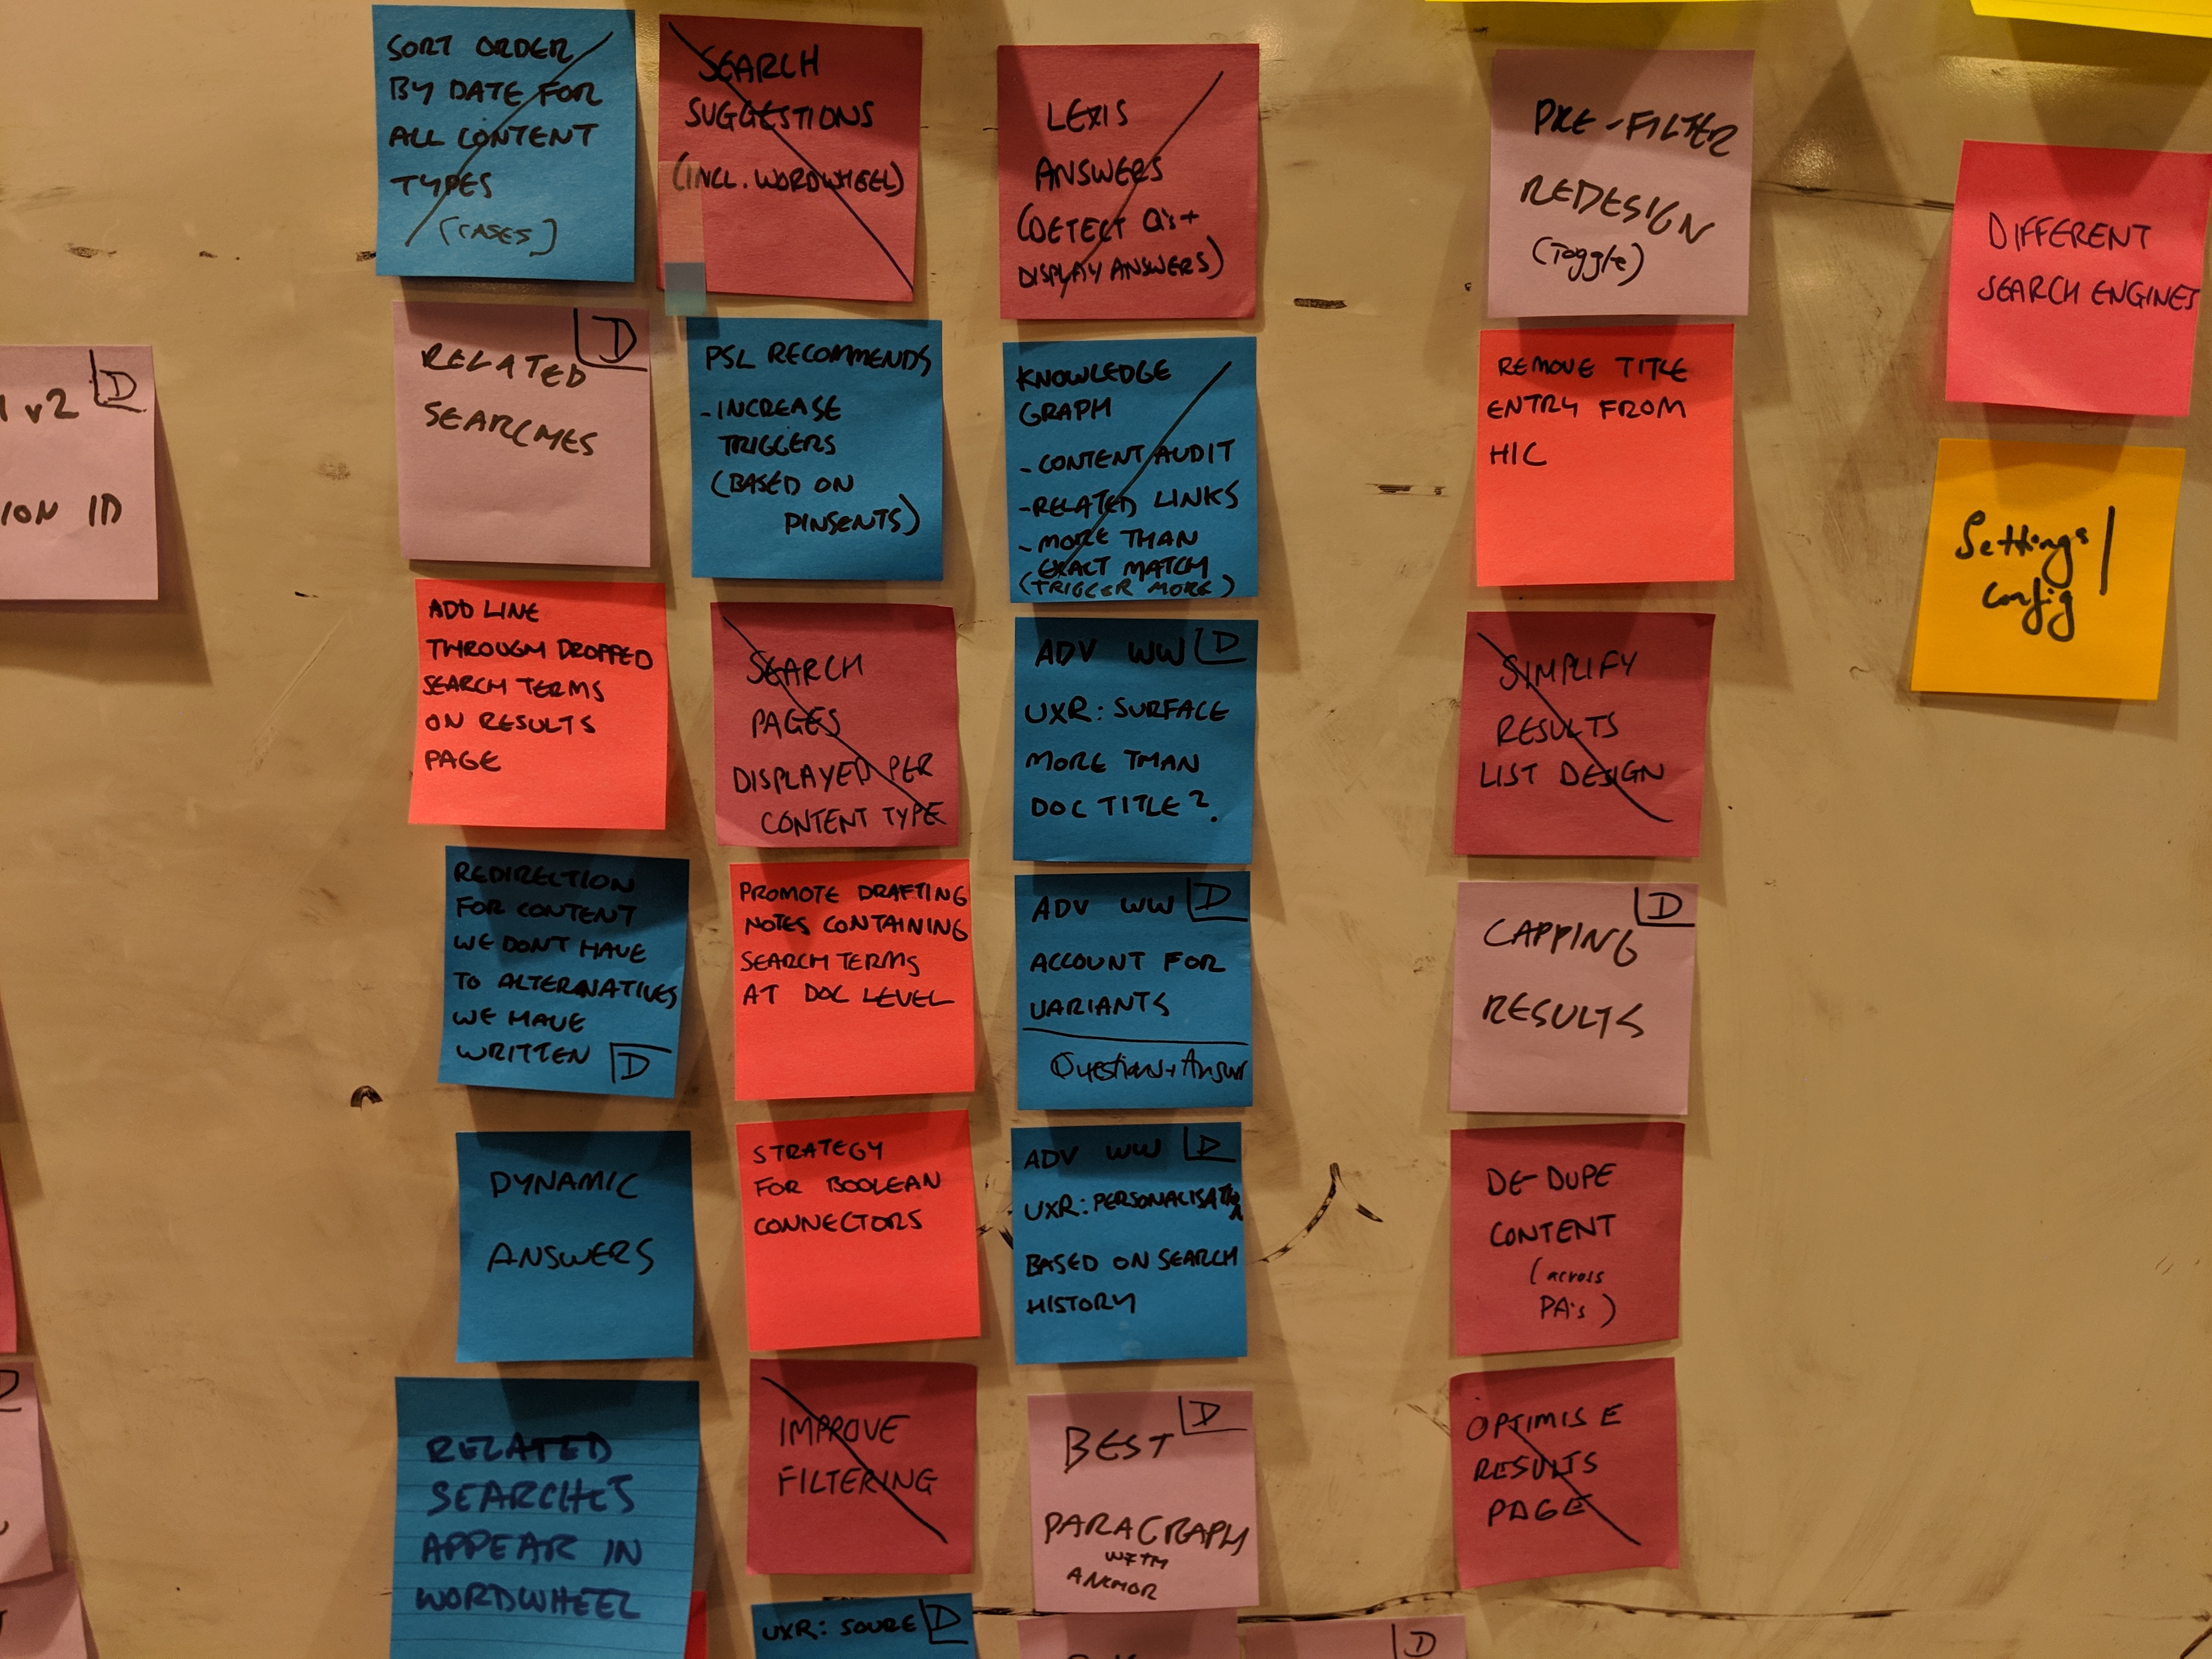 SORT ORDER
BY DATE FOR
ALL CONTENT
TYPES
(CASES)
RELATED
D
SEARCHES
ADD LINE
THROUGH DROPPED
SEARCH TERMS
ON RESULTS
PAGE
REDIRECTION
FOR CONTENT
WE DONT HAVE
TO ALTERNATIVES
WE HAVE
WRITTEN D
DYNAMIC
ANSWERS
RELATED
SEARCHES
APPEAR IN
WORDWHEEL
SEARCH
SUGGESTIONS
(INCL. WORDWHEEL)
PSL RECOMMENDS
-INCREASE
TRIGGERS
(BASED ON
PINSENTS)
SEARCH
PAGES
DISPLAYED PER
CONTENT TYPE
PROMOTE DRAFTING
NOTES CONTAINING
SEARCH TERMS
AT DOC LEVEL
STRATEGY
FOR BOOLEAN
CONNECTORS
IMPROVE
FILTERING
UXR: SOURE D
LEXIS
ANSWERS
(DETECT Q's +
DISPLAY ANSWERS)
KNOWLEDGE
GRAPH
- CONTENT AUDIT
- RELATED LINKS
- MORE THAN
EXACT MATCH
(TRIGGER MORE)
ADV WW D
UXR: SURFACE
MORE THAN
DOC TITLE?
ADV WW D
ACCOUNT FOR
VARIANTS
Question + Answr
ADV WW D
UXR: PERSONALISATION
BASED ON SEARCH
HISTORY
D
BEST
PARAGRAPH
WITH
ANCHOR
D
PRE-FILTER
REDESIGN
(Toggle)
REMOVE TITLE
ENTRY FROM
HIC
SIMPLIFY
RESULTS
LIST DESIGN
D
CAPPING
RESULTS
DE-DUPE
CONTENT
(across
PA's)
OPTIMISE
RESULTS
PAGE
DIFFERENT
SEARCH ENGINES
Settings/
Config
v2 D
ION ID